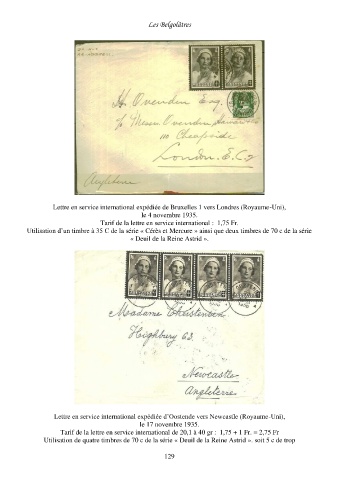 Les Belgolâtres
H. Ovenden Esq.
c/o Messrs Ovenden
110 Cheapside
London. E.C.2
Angleterre
Lettre en service international expédiée de Bruxelles 1 vers Londres (Royaume-Uni),
le 4 novembre 1935.
Tarif de la lettre en service international : 1,75 Fr.
Utilisation d'un timbre à 35 C de la série « Cérès et Mercure » ainsi que deux timbres de 70 c de la série
« Deuil de la Reine Astrid ».
Madame Christensen
Highbury 63.
Newcastle
Angleterre
Lettre en service international expédiée d'Oostende vers Newcastle (Royaume-Uni),
le 17 novembre 1935.
Tarif de la lettre en service international de 20,1 à 40 gr : 1,75 + 1 Fr. = 2,75 Fr
Utilisation de quatre timbres de 70 c de la série « Deuil de la Reine Astrid ». soit 5 c de trop
129